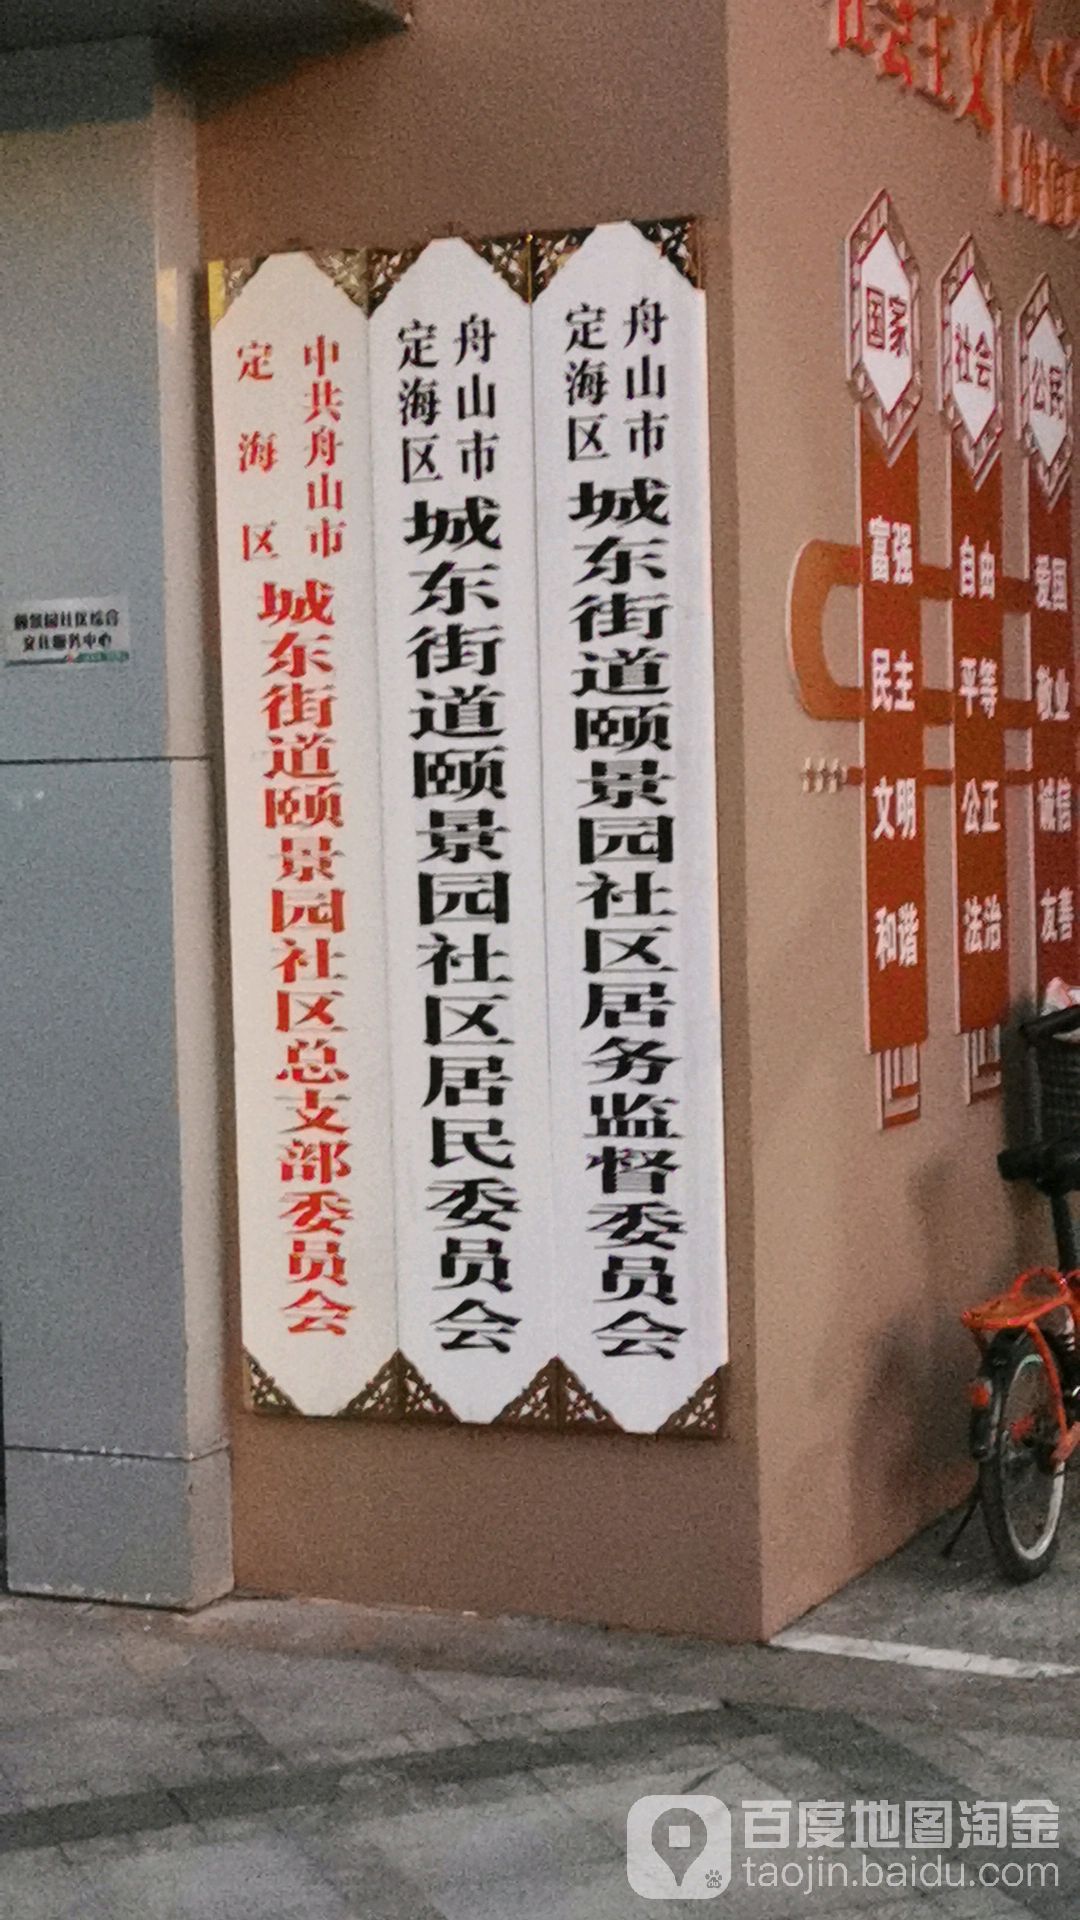 中共舟山市
定海区
城东街道颐景园社区总支部委员会
舟山市
定海区
城东街道颐景园社区居民委员会
舟山市
定海区
城东街道颐景园社区居务监督委员会
颐景园社区综合
文化服务中心
社会主义
国家
富强
民主
文明
和谐
社会
自由
平等
公正
法治
公民
爱国
敬业
诚信
友善
百度地图淘金
taojin.baidu.com